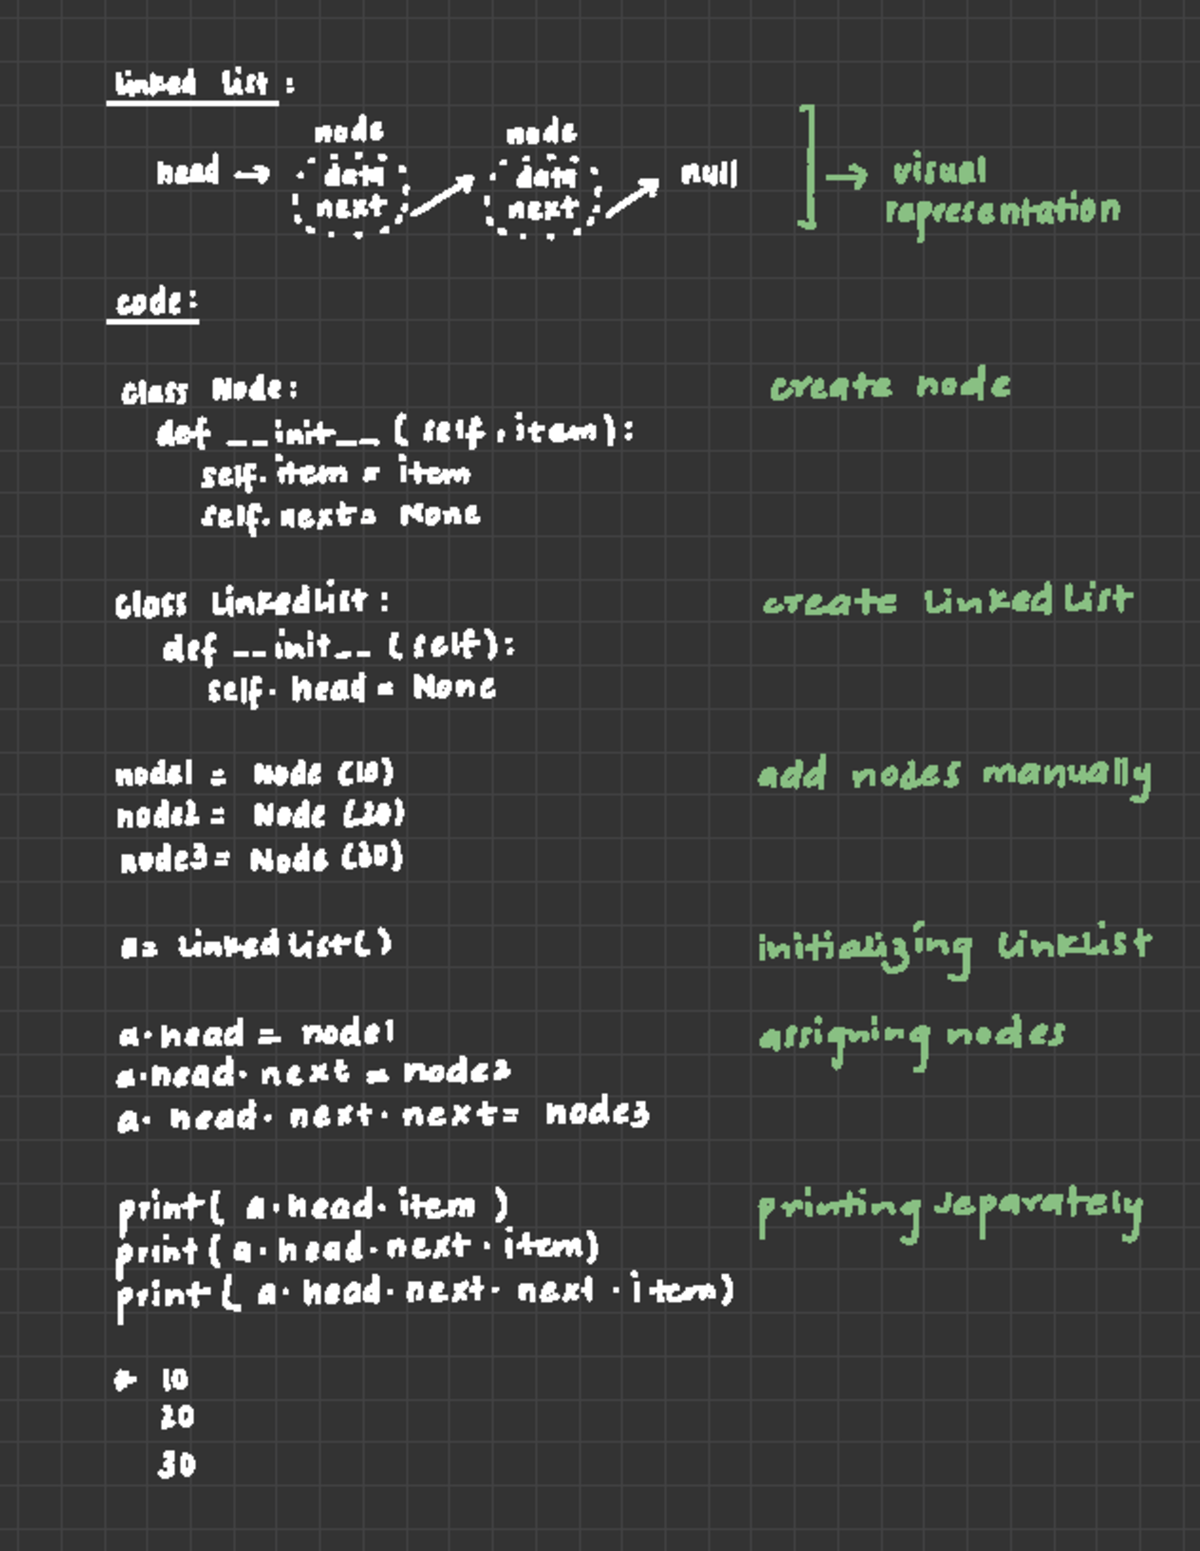 linked list :
node node
head → data data null ] → visual
next next representation
code:
class Node: create node
def __init__ ( self, item):
self. item = item
self. next = None
class LinkedList : create Linked List
def __init__ (self):
self. head = None
node1 = Node (10) add nodes manually
node2 = Node (20)
node3 = Node (30)
a= Linked List() initializing LinkList
a.head = node1 assigning nodes
a.head. next = node2
a. head. next. next = node3
print( a.head. item ) printing separately
print( a. head. next. item)
print( a. head. next. next .item)
10
20
30